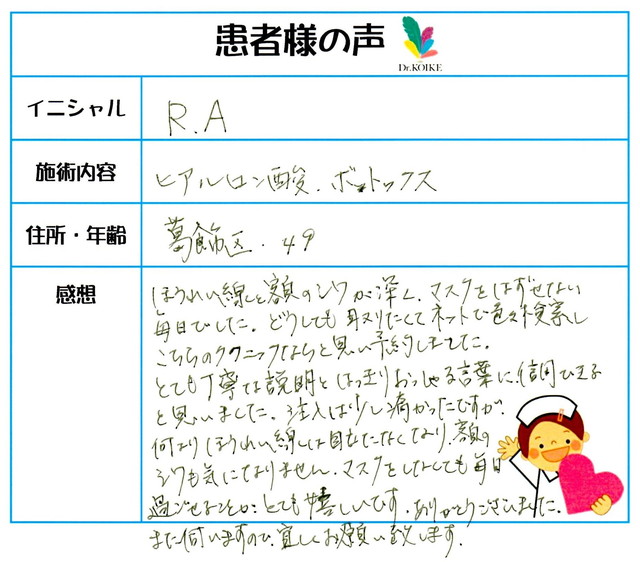 患者様の声
Dr.KOIKE
イニシャル
R.A
施術内容
ヒアルロン酸.ボトックス
住所・年齢
葛飾区.49
感想
ほうれい線と額のシワが深く、マスクをはずせない
毎日でした。どうしても取りたくてネットで色々検索し
こちらのクリニックならと思い予約しました。
とても丁寧な説明とはっきりおっしゃる言葉に信用できる
と思いました。注入は少し痛かったですが、
何よりほうれい線は目立たなくなり、額の
シワも気になりません。マスクをしなくても毎日
過ごせることがとても嬉しいです。ありがとうございました。
また伺いますので、宜しくお願い致します。